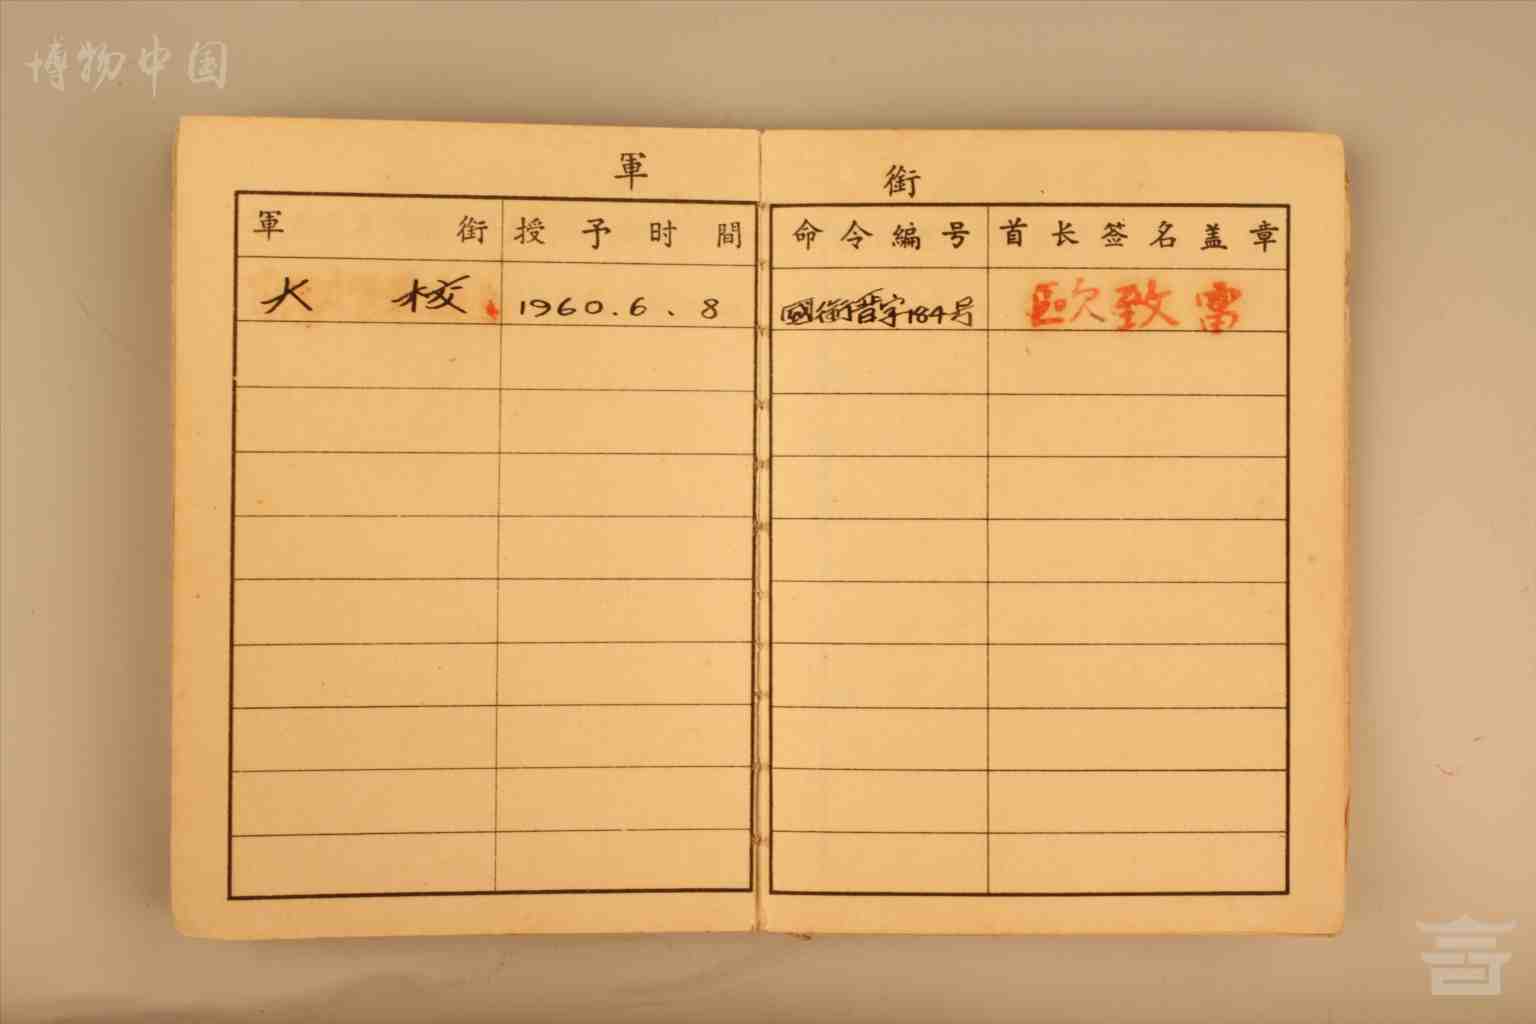 博物中国
軍 銜
軍 銜 授予时間 命令編号 首长签名盖章
大校 1960.6.8 國銜晋字184号 歐致富